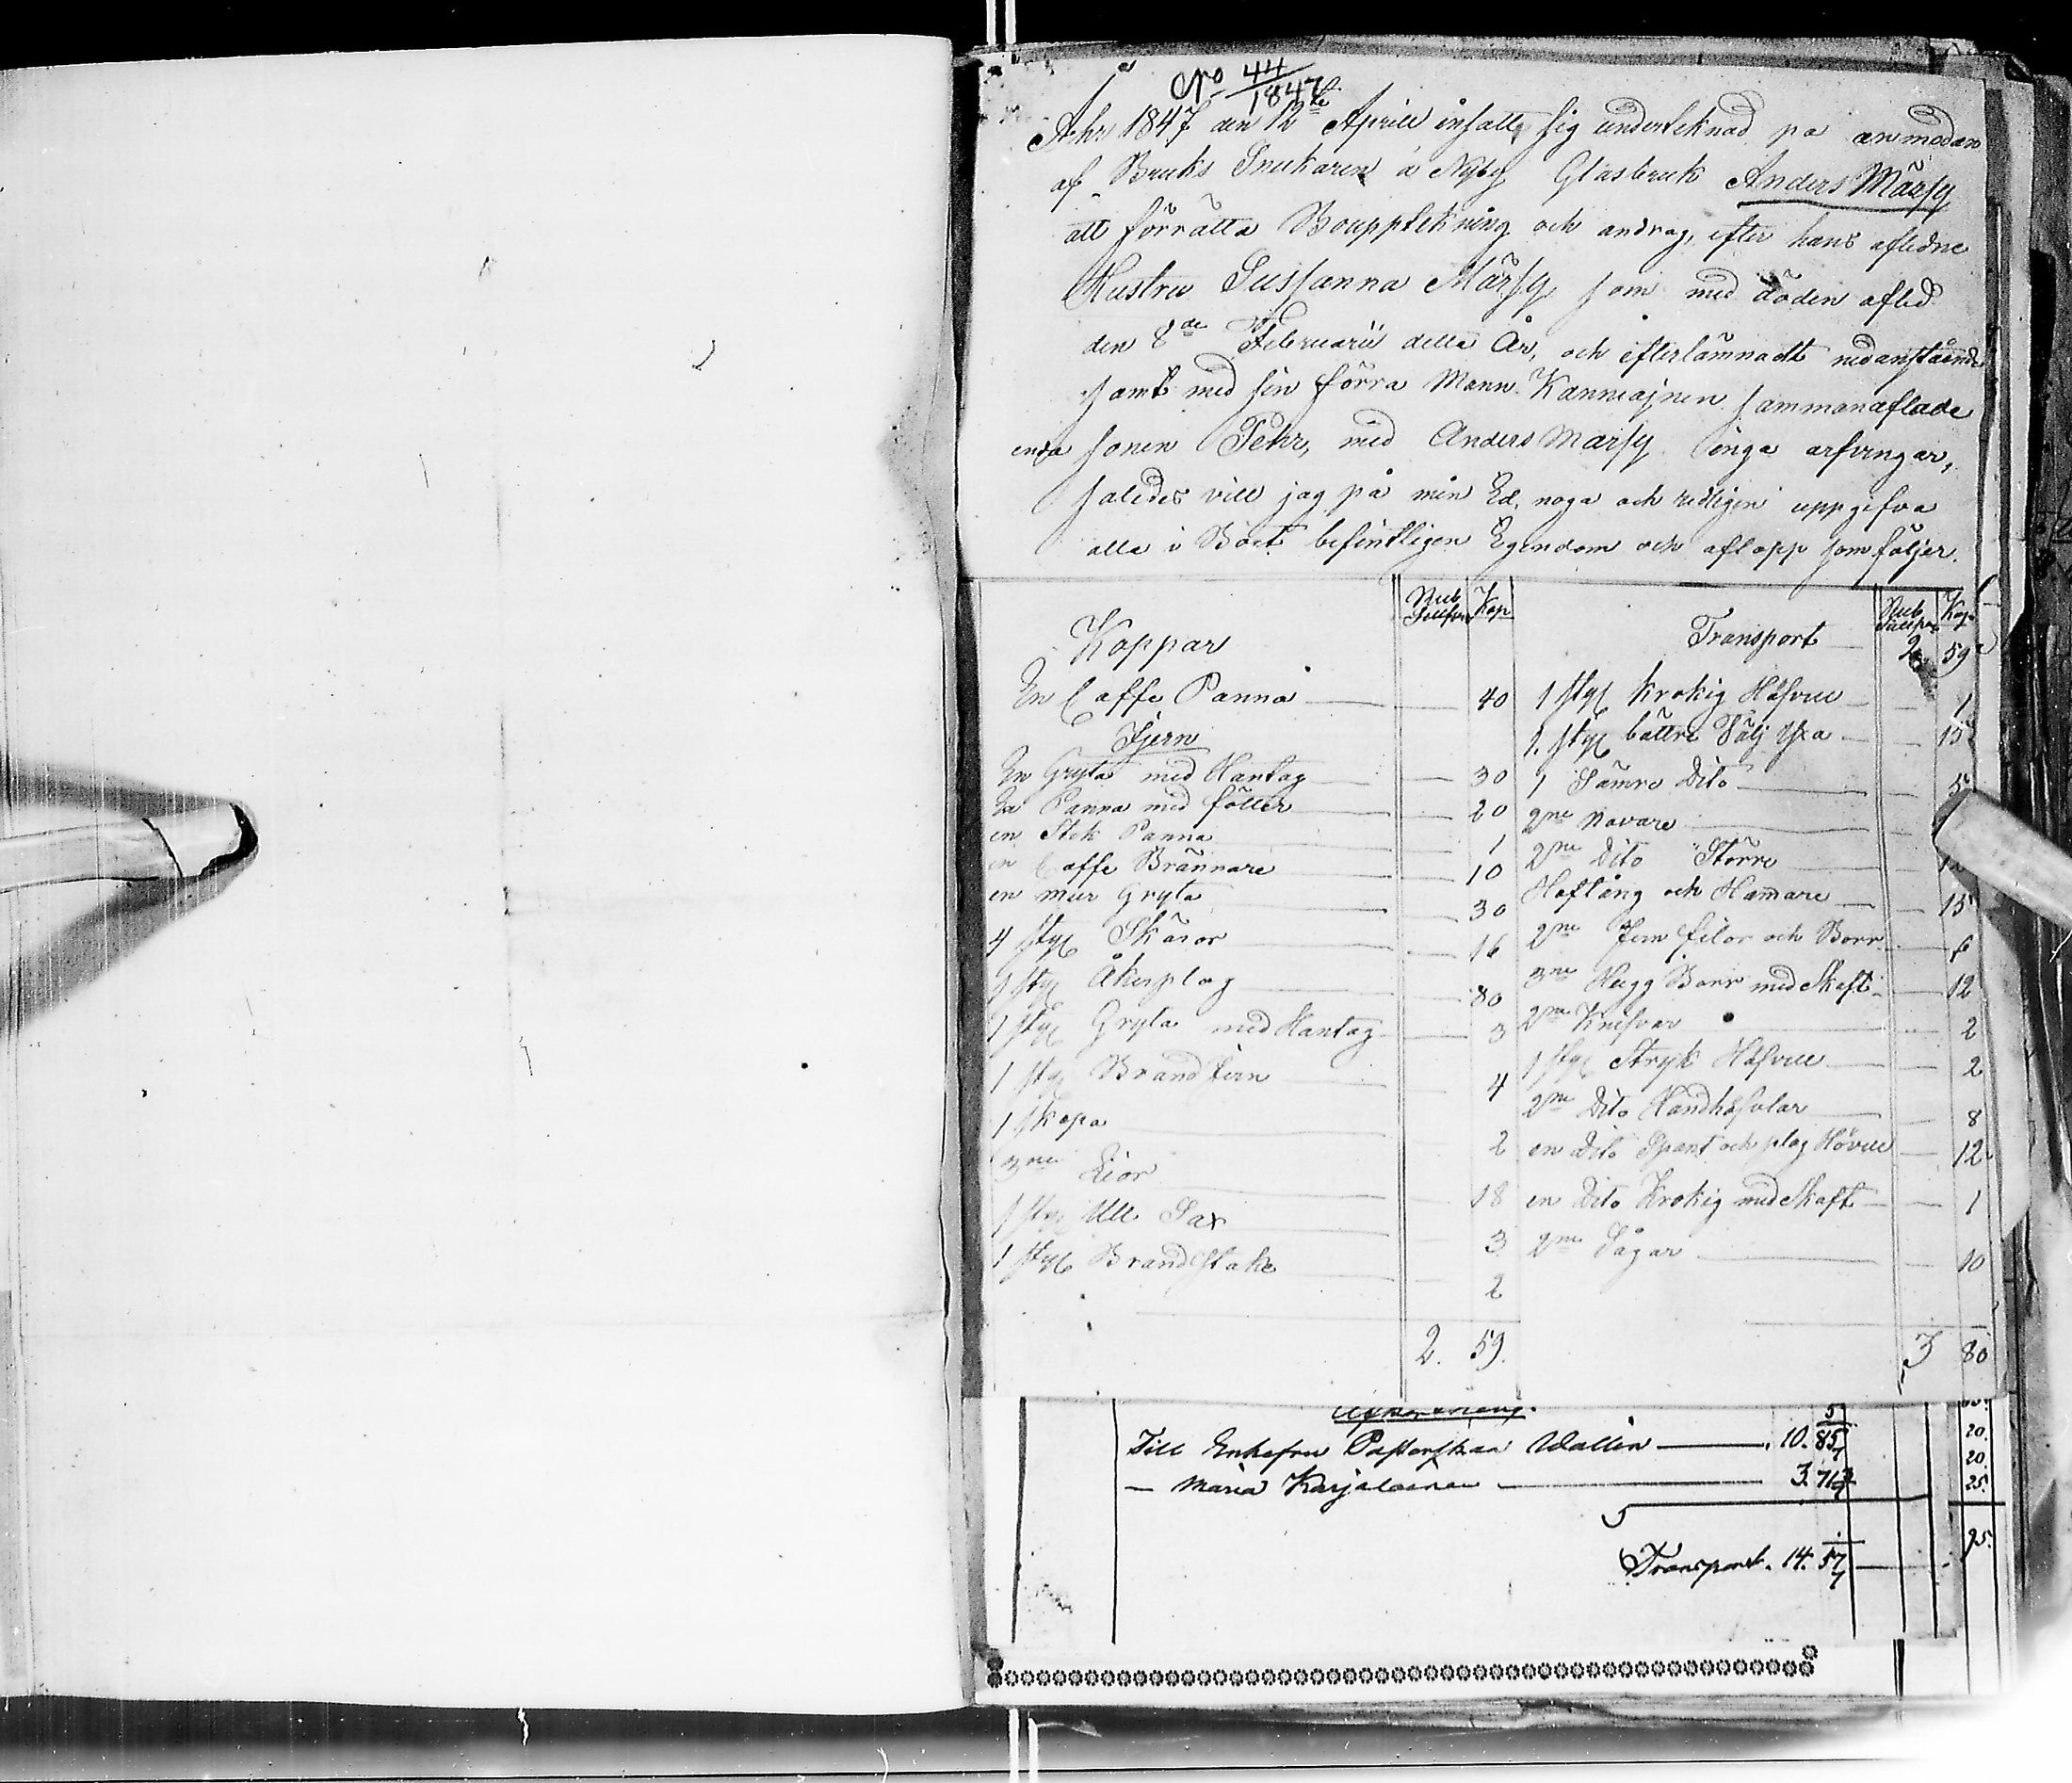 No 44/1847
Åhr 1847 den 12te Aprill insatte sig underteknad på anmodan
af Bruks Snickaren å Nyby Glasbruk Anders Märsy
att förrätta Bouppteckning och andrag, efter hans aflidne
Hustru Sussanna Märsy som med döden afled
den 8de Februarii detta År, och efterlämnadt nedanstående
samt med sin förra Mann Kanniajnen sammanaflade
enda sonen Pehr, med Anders Märsy inga arfvingar,
således vill jag på min Ed, noga och redligen uppgifva
alla i Boet befintligen Egendom och aflopp som följer.
Rub Silfver Kop
Koppar
En Caffe Panna 40
Jern
En Gryta med Hantag 30
En Panna med fötter 20
en Stek Panna 1
en Caffe Brännare 10
en mur Gryta 30
4 styc Skäror 16
1 styc Åkerplog 80
1 styc Gryta med Hantag 3
1 styc Brand Jern 4
1 skopa 2
3ne Lior 18
1 styc Ull Sax 3
1 styc Brand Stake 2
2. 59.
Rub Silfver Kop
Transport 2 59
1 styc Krokig Håfvell 1
1. styc bättre Fälj Yxa 15
1 Sämre Dito 5
2ne Navare
2ne Dito Större
Hoftång och Hamare 15
2ne Jern filor och Borr 6
3ne Hugg Borr med Skaft 12
2ne Knifvar 2
1 styc Stryk Håfvell 2
2ne Dito Handhåfvlar 8
en Dito Spant och plog Hövell 12
en Dito Krokig med Skaft 1
2ne Sågar 10
3 80
Till Enkefru Pastorskan Wallin 10. 85 5/7
— Maria Karjalainen 3. 71 3/7
Transport. 14. 57 1/7
20.
20.
25.
95.